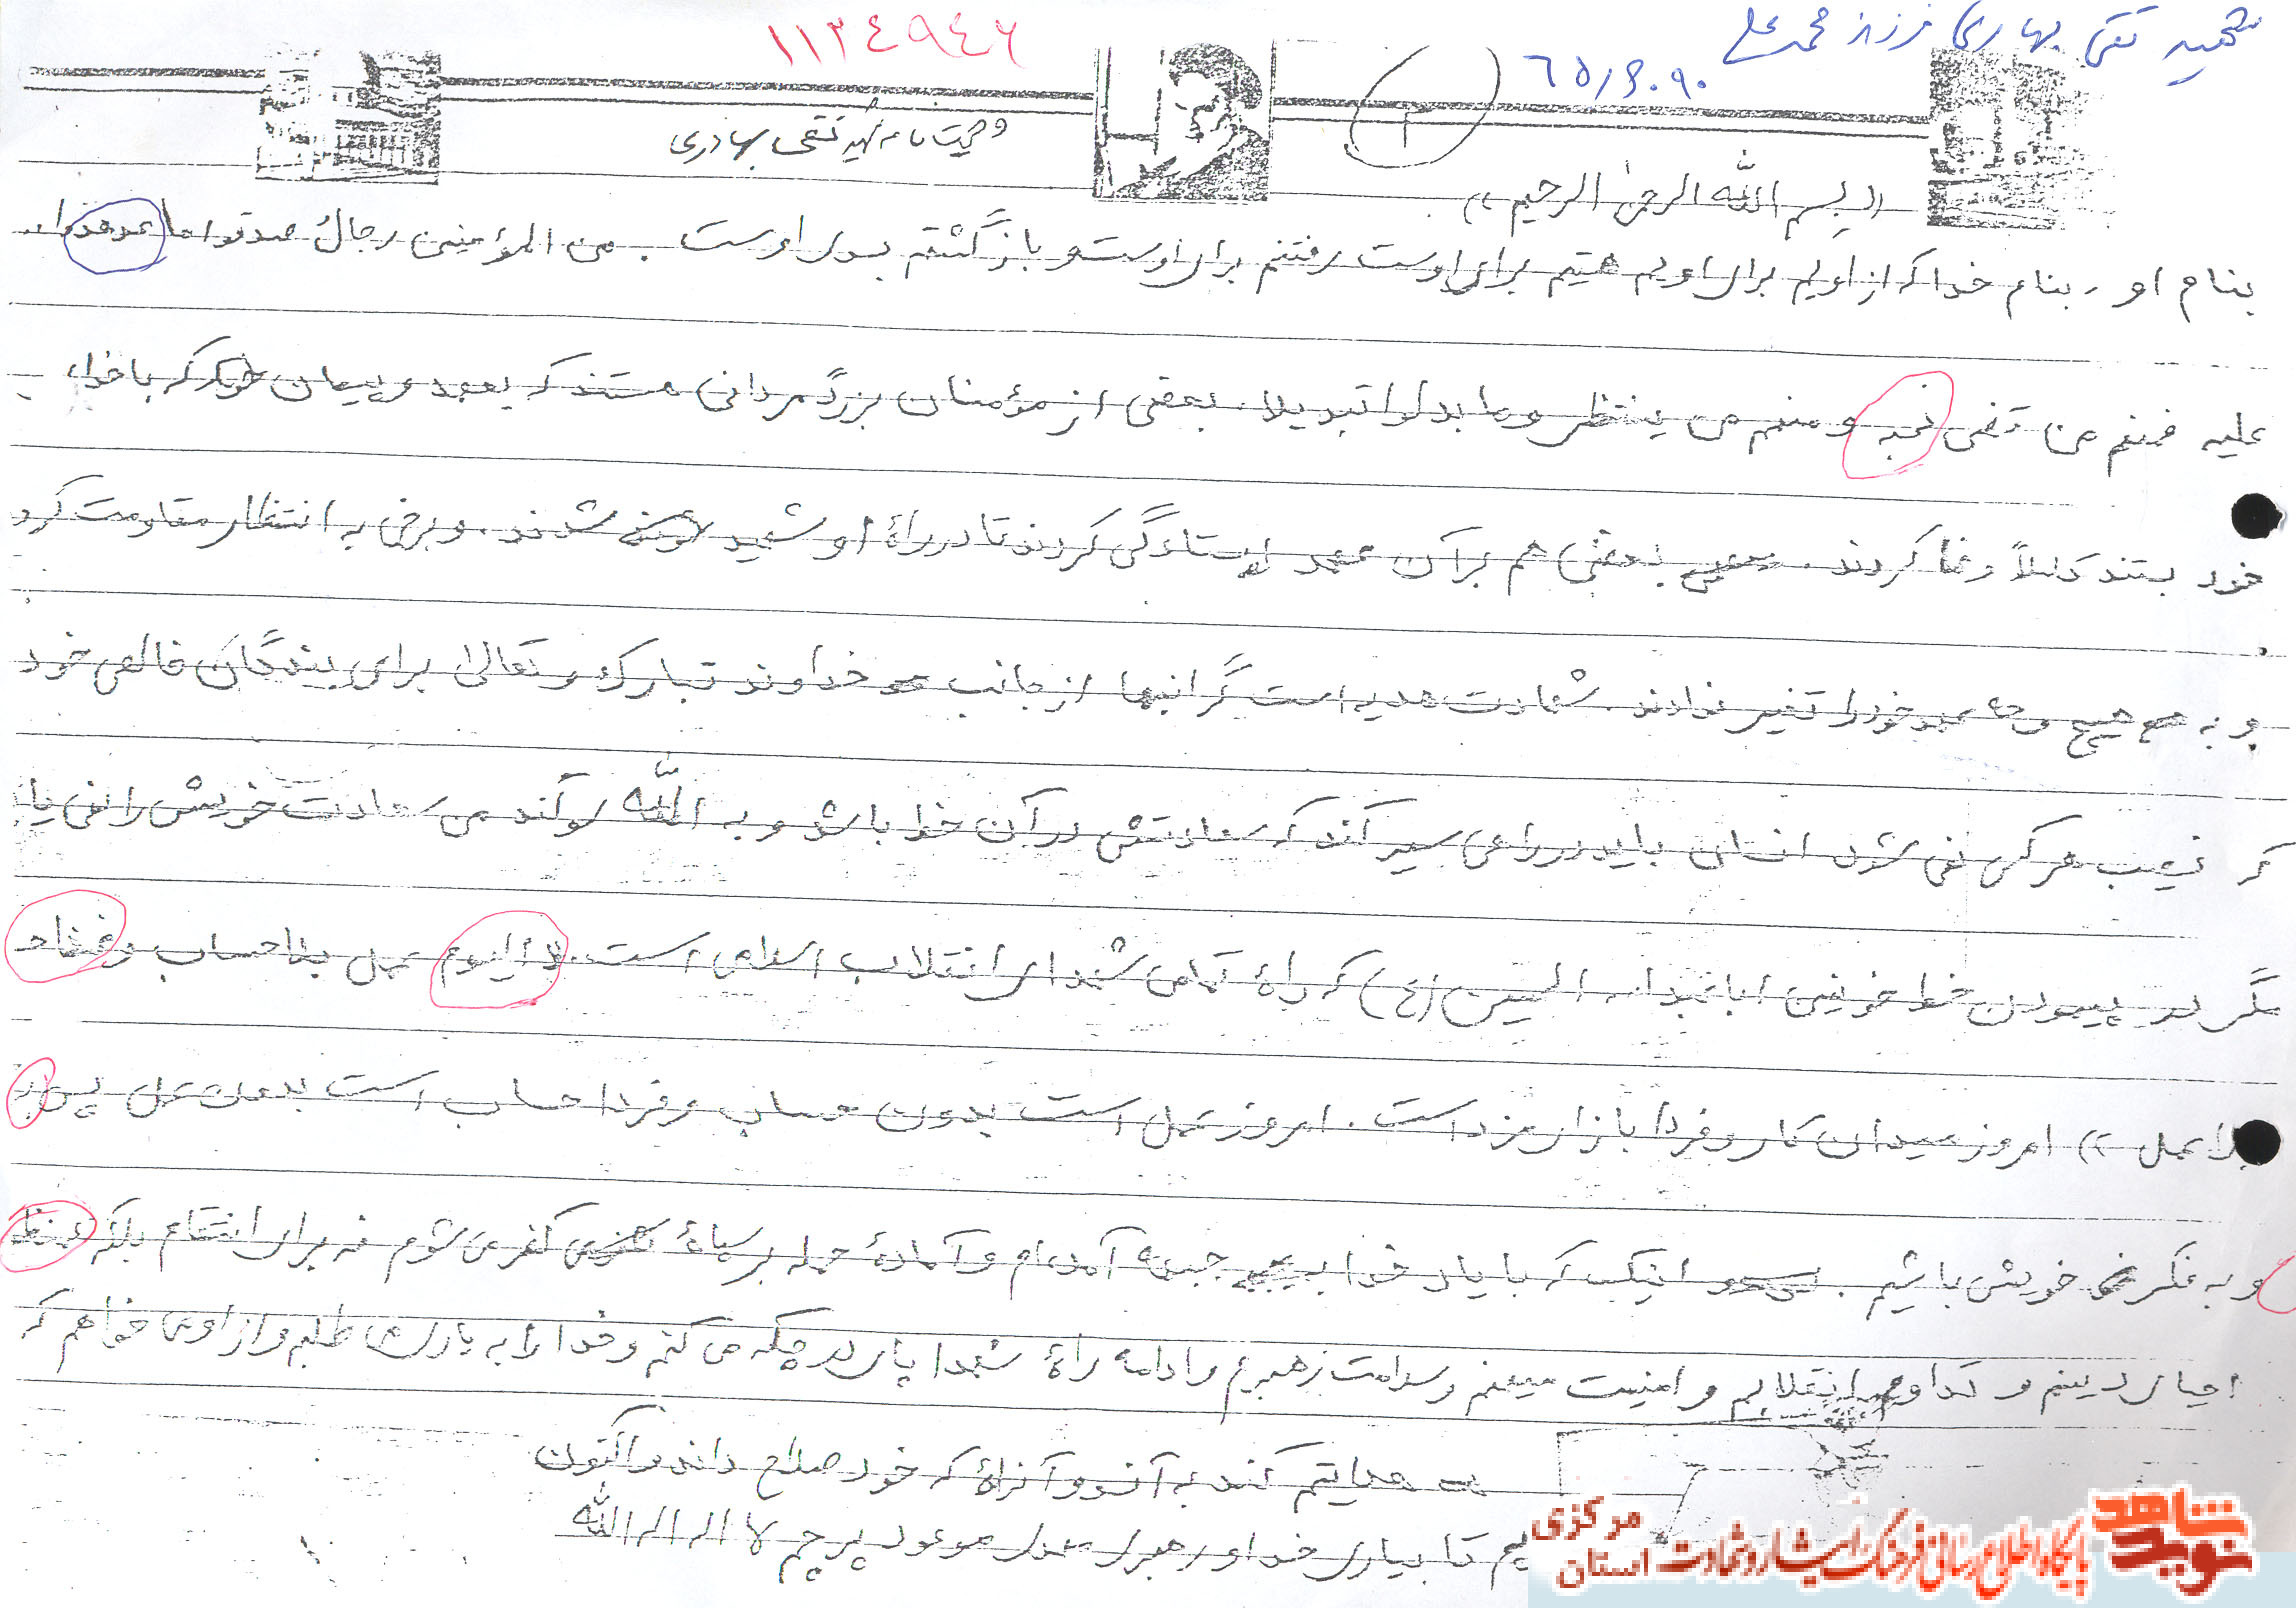 شهید تقی بهادری فرزند محمدعلی
۱۱۲۴۹۴۶
۶۵/۶۰۹۰
۲
وصیت نامه شهید تقی بهادری
«بسم الله الرحمن الرحیم»
بنام او، بنام خدا که از اویم برای اویم هستیم برای اوست رفتنم برای اوست و بازگشتم بسوی اوست. من المؤمنین رجالٌ صدقوا ما عدهدوا..
علیه فمنهم من قضی نحبه و منهم من ینتظر و ما بدلوا تبدیلا. بعضی از مؤمنان بزرگ مردانی هستند که بعهد و پیمان خود که با خدا،
خود بستند کاملاً وفا کردند. بعضی هم بر آن عهد ایستادگی کردند تا در راهٔ او شهید شدند. و برخی به انتظار مقاومت کرد
و به هیچ وجه عهد خود را تغیر ندادند. شهادت هدیه است گرانبها از جانب خداوند تبارک و تعالی برای بندگان خالص خود
که نصیب هر کس نمی شود انسان باید در راهی سیر کند که سعادتش در آن خط باشد و به الله سوگند من سعادت خویش را نمی یا
مگر در پیمودن خط خونین اباعبداله الحسین (ع) که راهٔ تمامی شهدای انقلاب اسلامی است. الیوم عمل بلاحساب و
بلا عمل» امروز میدان کار و فردا بازار مزد است. امروز عمل است بدون حساب و فردا حساب است بدون عمل پس
و به فکر خویش باشیم. اینک که با یاد خدا به جبهه آمده‌ام و آمادهٔ حمله بر سپاهٔ کفر می شوم نه برای انتقام بلکه
احیای دینم و تداوم انقلابم و امنیت میهنم و سلامت رهبرم و ادامه راهٔ شهدا پای در چکمه می کنم و خدا را به یاری می طلبم و از او می خواهم که
هدایتم کند به آنسو و آنراهٔ که خود صلاح داند و اکنون
تا بیاری خدا و رهبری مهدی موعود پرچم لا اله الا الله
شاهد
نوید
پایگاه اطلاع رسانی فرهنگ ایثار و شهادت استان مرکزی